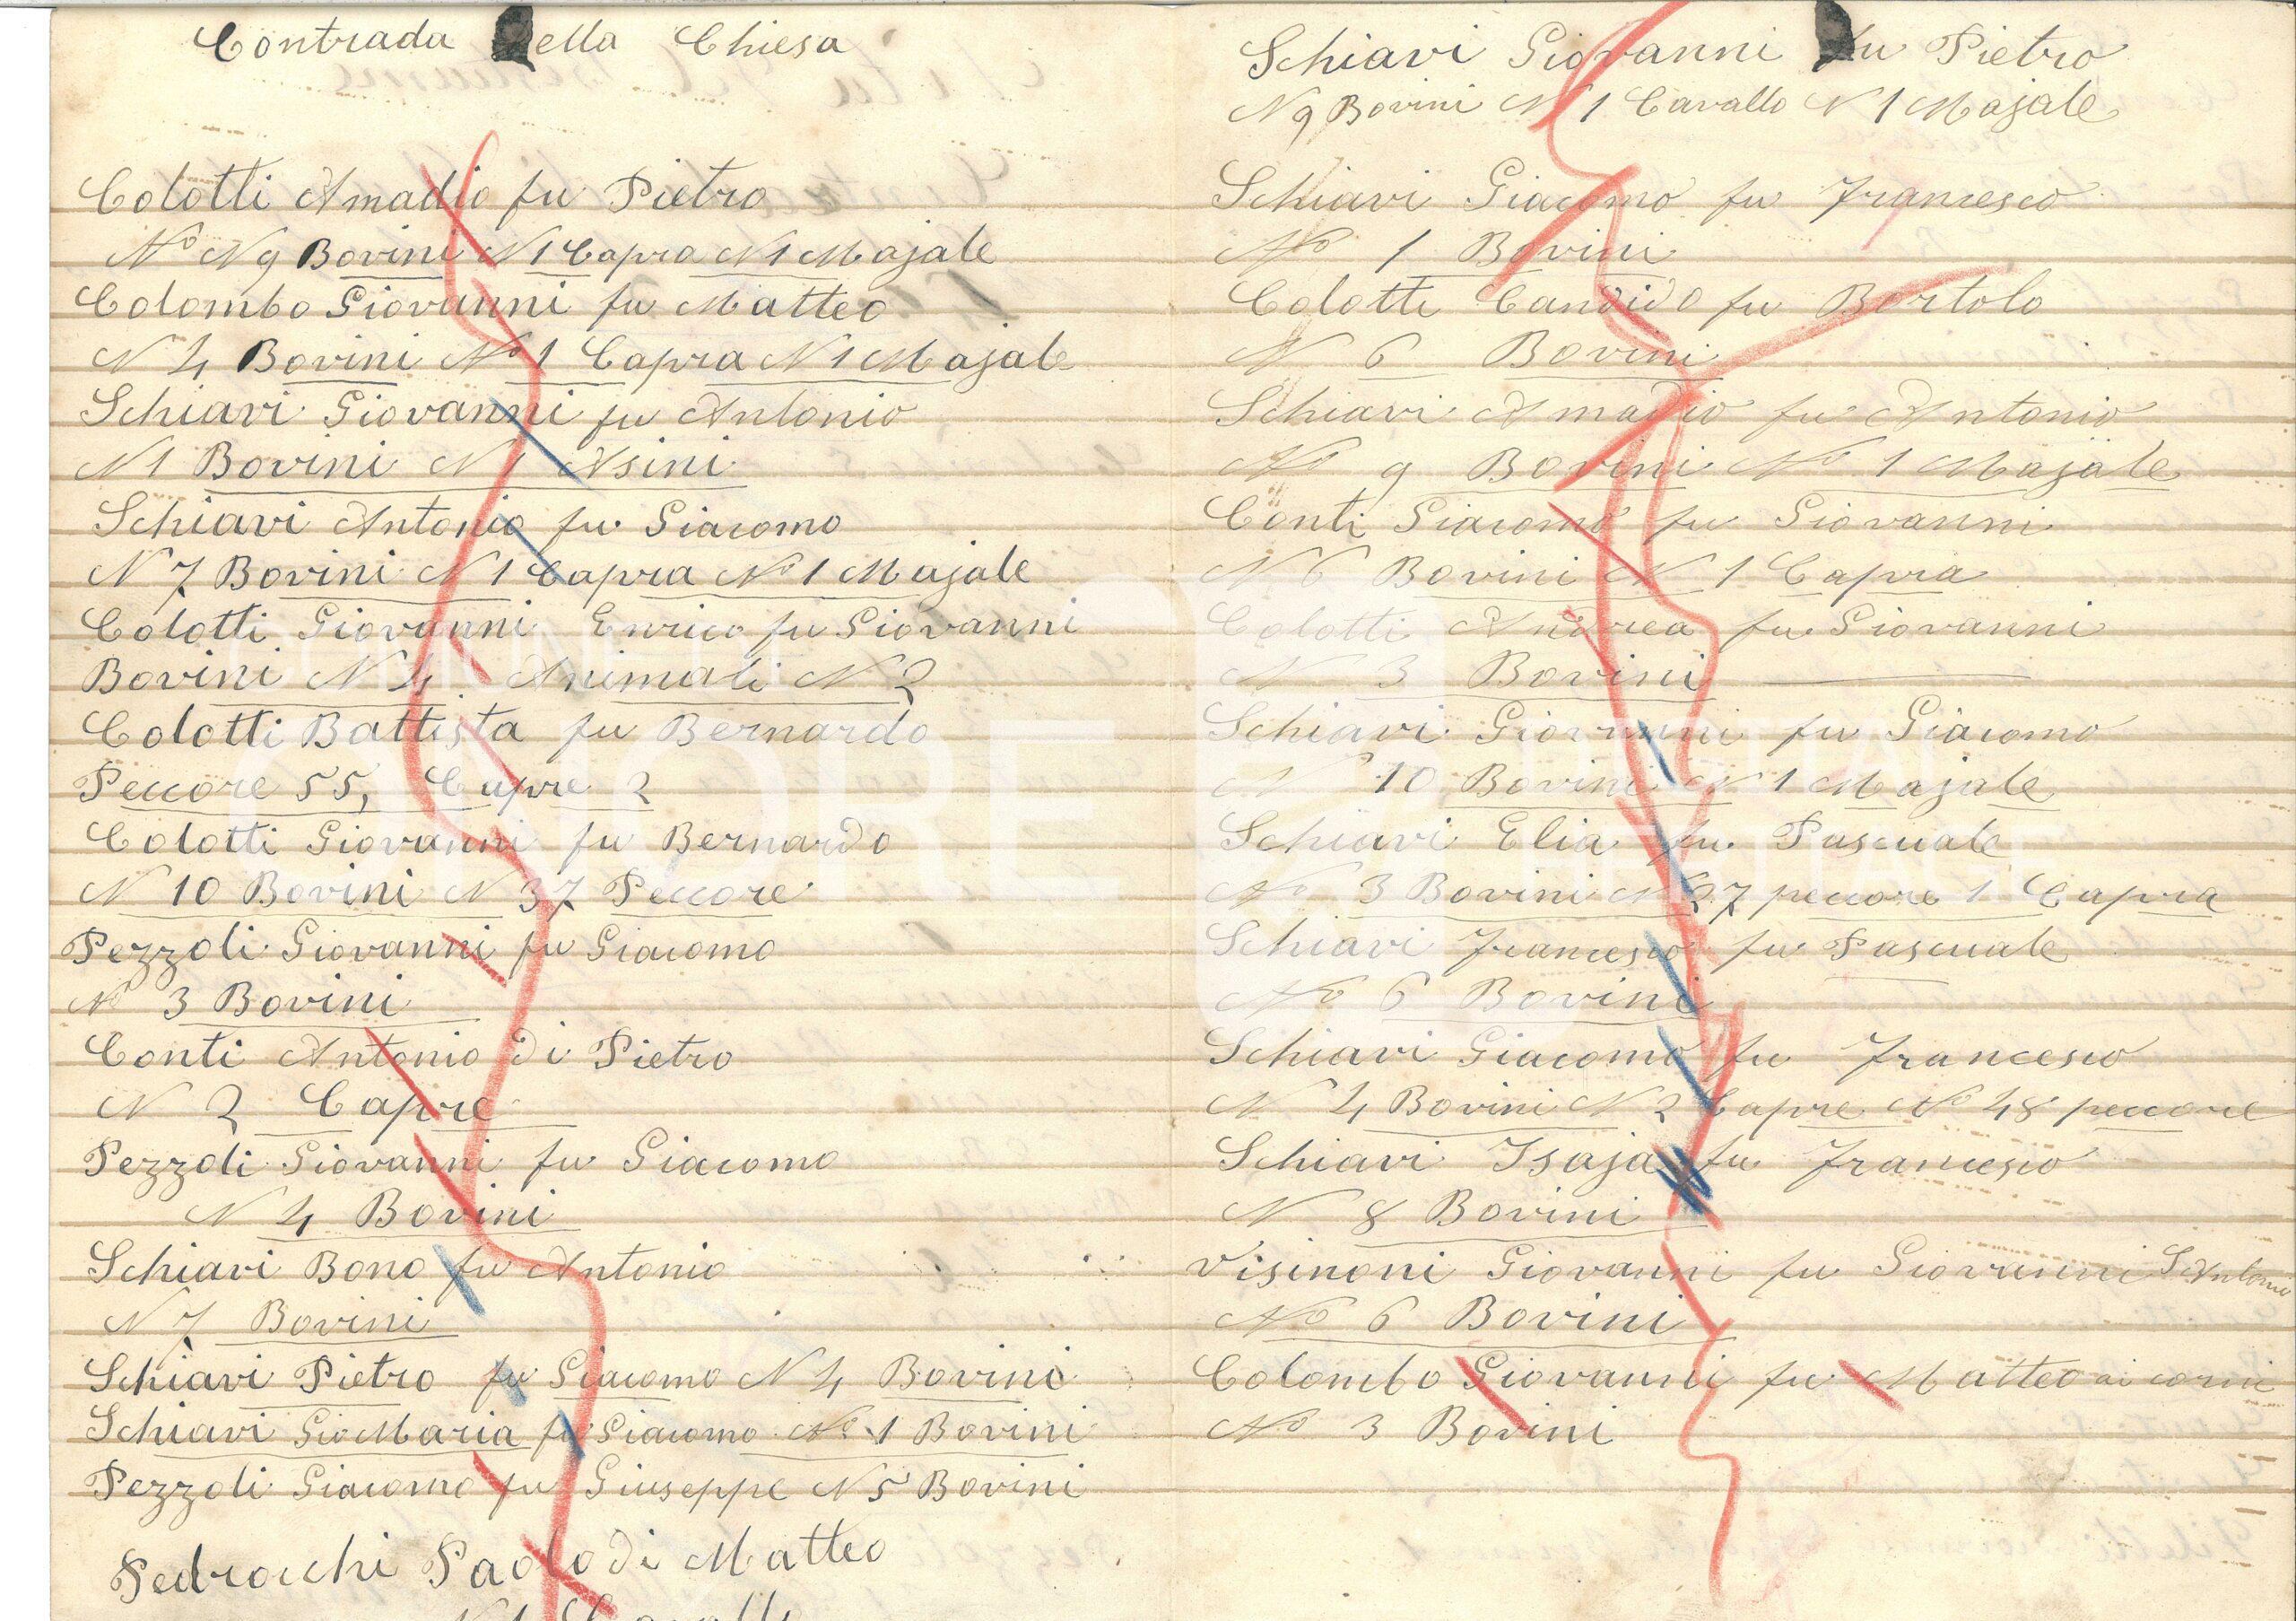 Contrada della Chiesa
Colotti Amadio fu Pietro
No N 9 Bovini N 1 Capra N 1 Majale
Colombo Giovanni fu Matteo
N 4 Bovini No 1 Capra N 1 Majale
Schiavi Giovanni fu Antonio
N 1 Bovini N 1 Asini
Schiavi Antonio fu Giacomo
N 7 Bovini N 1 Capra No 1 Majale
Colotti Giovanni Enrico fu Giovanni
Bovini N 4 Animali N 2
Colotti Battista fu Bernardo
Peccore 55, Capre 2
Colotti Giovanni fu Bernardo
N 10 Bovini N 37 Peccore
Pezzoli Giovanni fu Giacomo
No 3 Bovini
Conti Antonio di Pietro
N 2 Capre
Pezzoli Giovanni fu Giacomo
N 4 Bovini
Schiavi Bono fu Antonio
N 7 Bovini
Schiavi Pietro fu Giacomo N 4 Bovini
Schiavi Gio Maria fu Giacomo No 1 Bovini
Pezzoli Giacomo fu Giuseppe N 5 Bovini
Pedrocchi Paolo di Matteo
N 1 Cavallo
Schiavi Giovanni fu Pietro
N 9 Bovini N 1 Cavallo N 1 Majale
Schiavi Giacomo fu Francesco
No 1 Bovini
Colotti Candido fu Bortolo
N 6 Bovini
Schiavi Amadio fu Antonio
No 9 Bovini No 1 Majale
Conti Giacomo fu Giovanni
N 6 Bovini N 1 Capra
Colotti Andrea fu Giovanni
N 3 Bovini
Schiavi Giovanni fu Giacomo
N 10 Bovini N 1 Majale
Schiavi Elia fu Pascuale
No 3 Bovini N 27 peccore 1 Capra
Schiavi Francesco fu Pascuale
No 6 Bovini
Schiavi Giacomo fu Francesco
N 4 Bovini N 2 Capre No 48 peccore
Schiavi Isaja fu Francesco
N 8 Bovini
Visinoni Giovanni fu Giovanni S Antonio
No 6 Bovini
Colombo Giovanni fu Matteo ai corni
No 3 Bovini